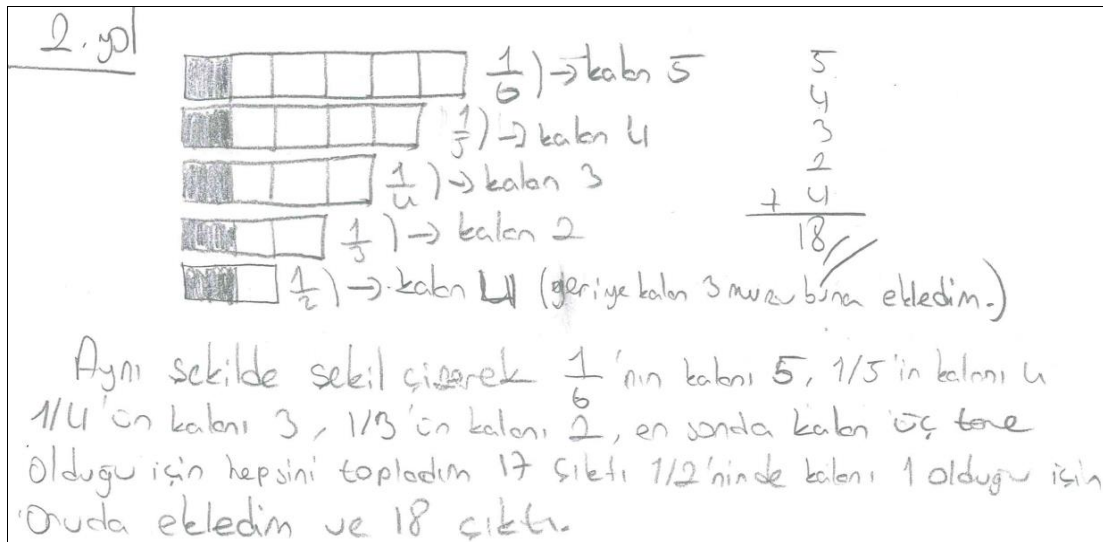 2. yol
1/6) → kalan 5
1/5) → kalan 4
1/4) → kalan 3
1/3) → kalan 2
1/2) → kalan 4 (geriye kalan 3 muzu buna ekledim.)
5
4
3
2
+ 4
18
Aynı sekilde sekil çizerek 1/6'nın kalanı 5, 1/5'in kalanı 4
1/4'ün kalanı 3, 1/3'ün kalanı 2, en sonda kalan üç tane
olduğu için hepsini topladım 17 çıktı 1/2'ninde kalanı 1 olduğu için
Onuda ekledim ve 18 çıktı.